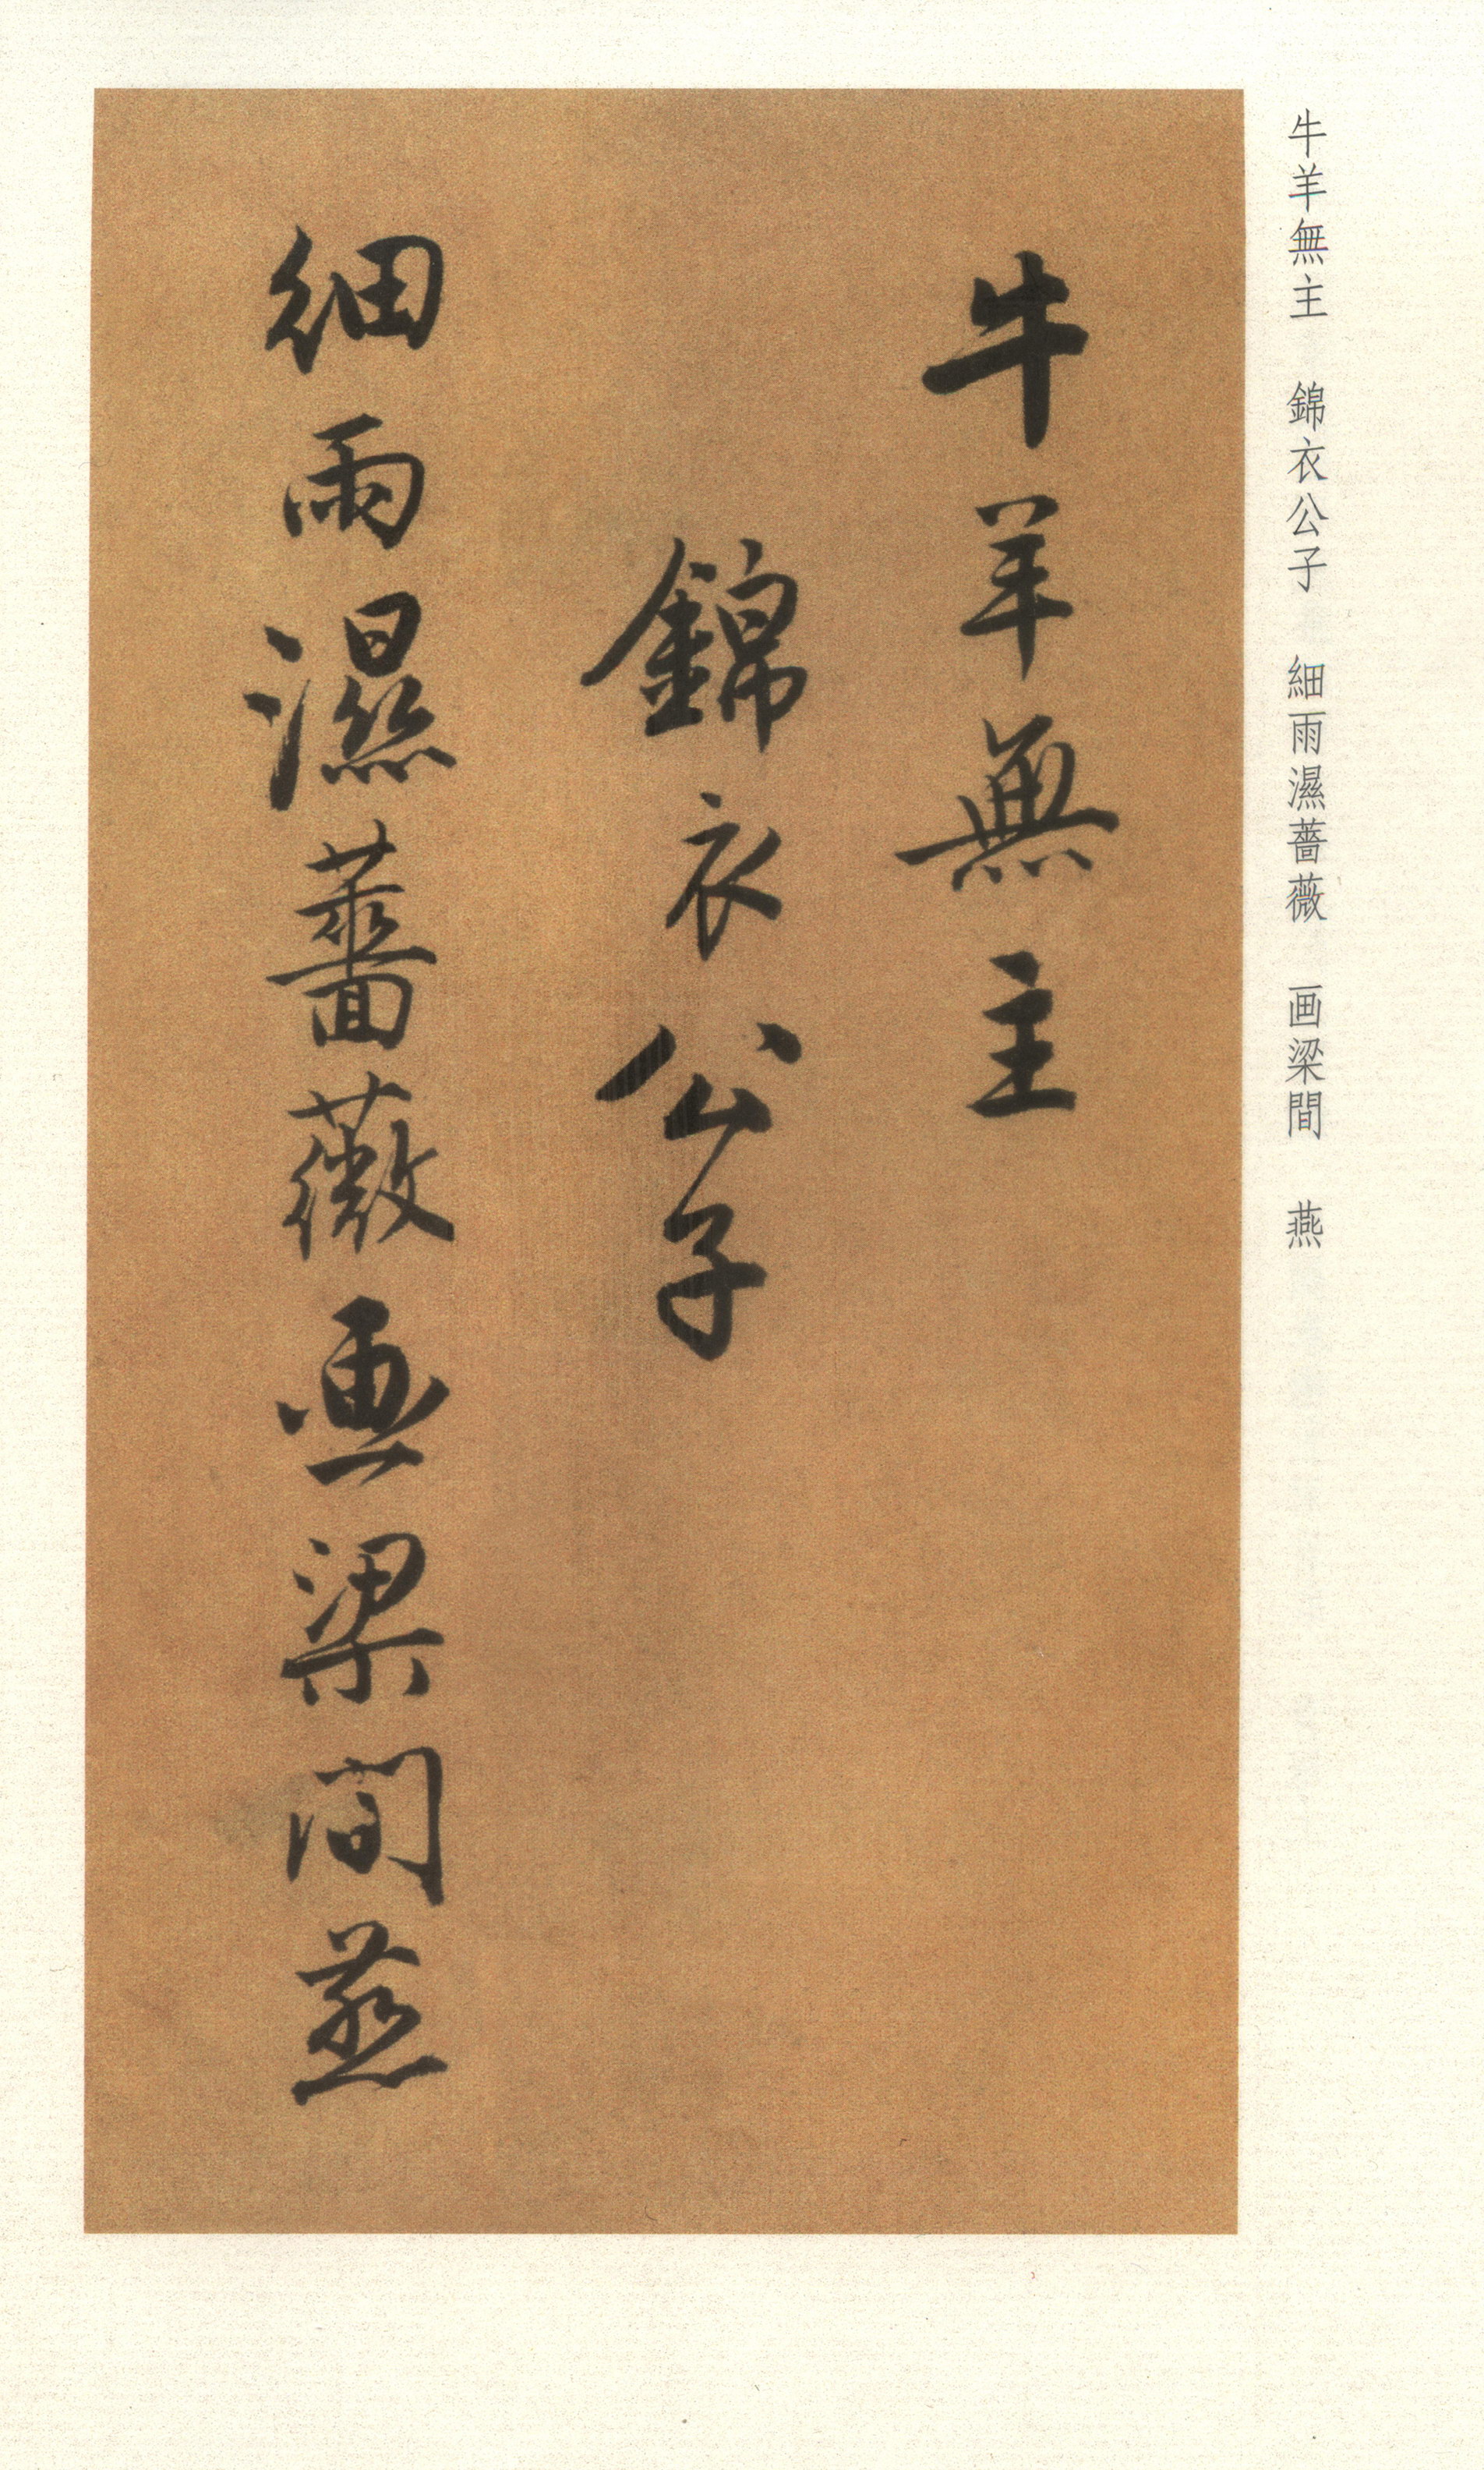 牛羊無主　錦衣公子　細雨濕薔薇　画梁間　燕
牛羊無主
錦衣公子
細雨濕薔薇画梁間燕